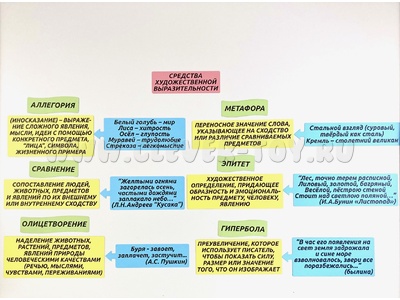 СРЕДСТВА
ХУДОЖЕСТВЕННОЙ
ВЫРАЗИТЕЛЬНОСТИ
АЛЛЕГОРИЯ
(ИНОСКАЗАНИЕ) – ВЫРАЖЕ-
НИЕ СЛОЖНОГО ЯВЛЕНИЯ,
МЫСЛИ, ИДЕИ С ПОМОЩЬЮ
КОНКРЕТНОГО ПРЕДМЕТА,
"ЛИЦА", СИМВОЛА,
ЖИЗНЕННОГО ПРИМЕРА
Белый голубь – мир
Лиса – хитрость
Осёл – глупость
Муравей – трудолюбие
Стрекоза – легкомыслие
МЕТАФОРА
ПЕРЕНОСНОЕ ЗНАЧЕНИЕ СЛОВА,
УКАЗЫВАЮЩЕЕ НА СХОДСТВО
ИЛИ РАЗЛИЧИЕ СРАВНИВАЕМЫХ
ПРЕДМЕТОВ
Стальной взгляд (суровый,
твёрдый как сталь)
Кремль – столетний великан
СРАВНЕНИЕ
СОПОСТАВЛЕНИЕ ЛЮДЕЙ,
ЖИВОТНЫХ, ПРЕДМЕТОВ
И ЯВЛЕНИЙ ПО ИХ ВНЕШНЕМУ
ИЛИ ВНУТРЕННЕМУ СХОДСТВУ
"Желтыми огнями
загорелась осень,
частыми дождями
заплакало небо..."
(Л.Н.Андреев "Кусака")
ЭПИТЕТ
ХУДОЖЕСТВЕННОЕ
ОПРЕДЕЛЕНИЕ, ПРИДАЮЩЕЕ
ОБРАЗНОСТЬ И ЭМОЦИОНАЛЬ-
НОСТЬ ПРЕДМЕТУ, ЧЕЛОВЕКУ,
ЯВЛЕНИЮ
"Лес, точно терем расписной,
Лиловый, золотой, багряный,
Весёлой, пёстрою стеной
Стоит над светлою поляной,..."
(И.А.Бунин «Листопад»)
ОЛИЦЕТВОРЕНИЕ
НАДЕЛЕНИЕ ЖИВОТНЫХ,
РАСТЕНИЙ, ПРЕДМЕТОВ,
ЯВЛЕНИЙ ПРИРОДЫ
ЧЕЛОВЕЧЕСКИМИ КАЧЕСТВАМИ
(РЕЧЬЮ, МЫСЛЯМИ,
ЧУВСТВАМИ, ПЕРЕЖИВАНИЯМИ)
Буря - завоет,
заплачет, застучит...
(А.С. Пушкин)
ГИПЕРБОЛА
ПРЕУВЕЛИЧЕНИЕ, КОТОРОЕ
ИСПОЛЬЗУЕТ ПИСАТЕЛЬ,
ЧТОБЫ ПОКАЗАТЬ СИЛУ,
РАЗМЕР ИЛИ ЗНАЧЕНИЕ
ТОГО, ЧТО ОН ИЗОБРАЖАЕТ
"В час его появления на
свет земля задрожала
и сине море
взволновалось, звери все
поразбежались..."
(былина)